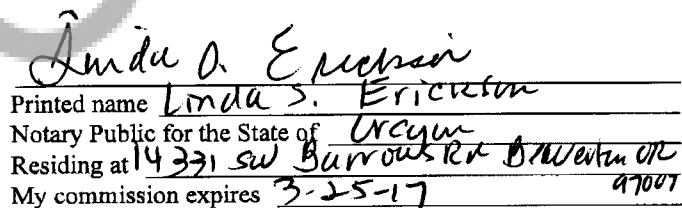 Linda S. Erickson
Printed name Linda S. Erickson
Notary Public for the State of Oregon
Residing at 14331 SW Barrows Rd Beaverton OR
97007
My commission expires 3-25-17